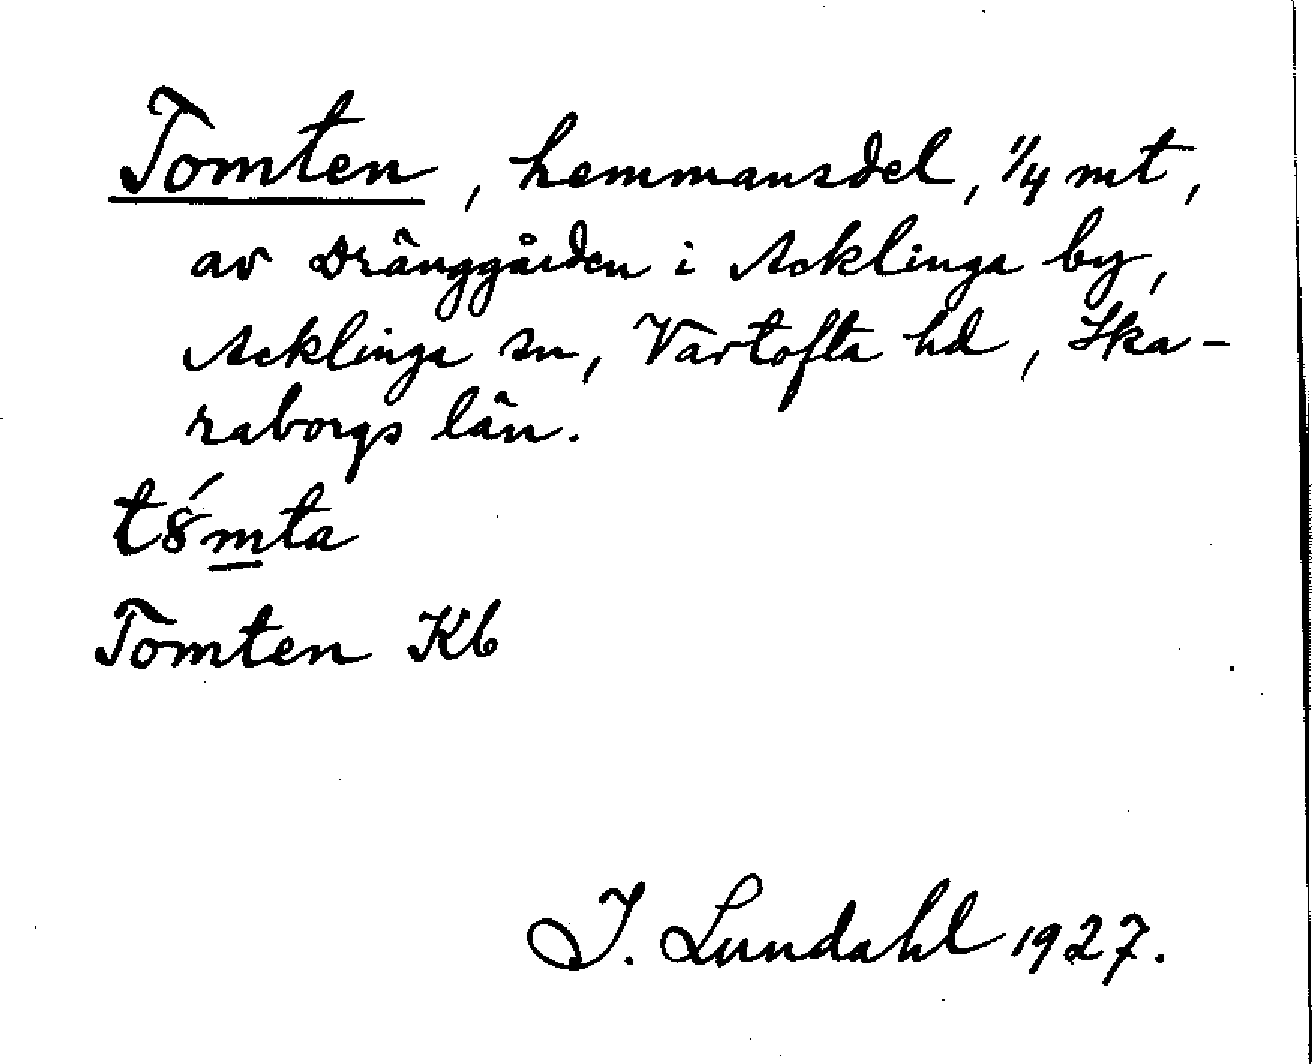 Tomten, hemmansdel, 1/4 mt,
av Dränggården i Acklinga by,
Acklinga sn, Vartofta hd, Ska-
raborgs län.
tȣ́m̲ta
Tomten Kb
I. Lundahl 1927.